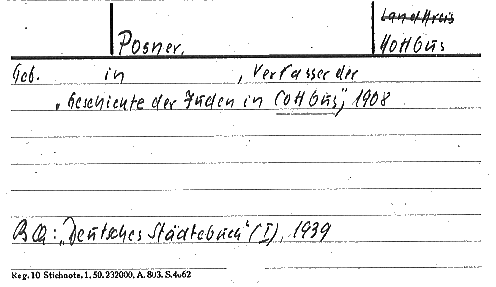 Landkreis
Posner. Kottbus
Geb. in , Verfasser der
„Geschichte der Juden in Cottbus", 1908
BQ: „Deutsches Städtebuch" (I), 1939
Reg. 10 Stichnote. 1, 50. 232000. A. 803. S. 4062